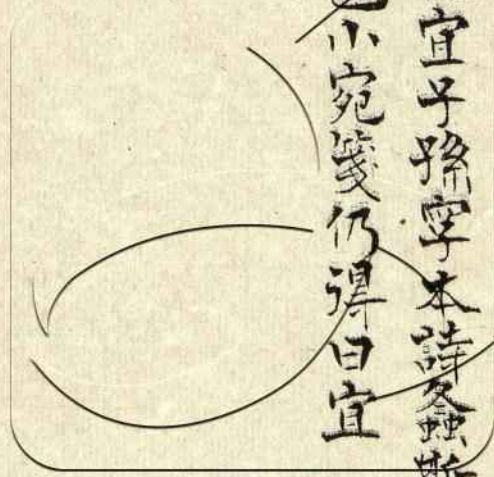 宜子孫字本詩螽斯
小宛箋仍得曰宜